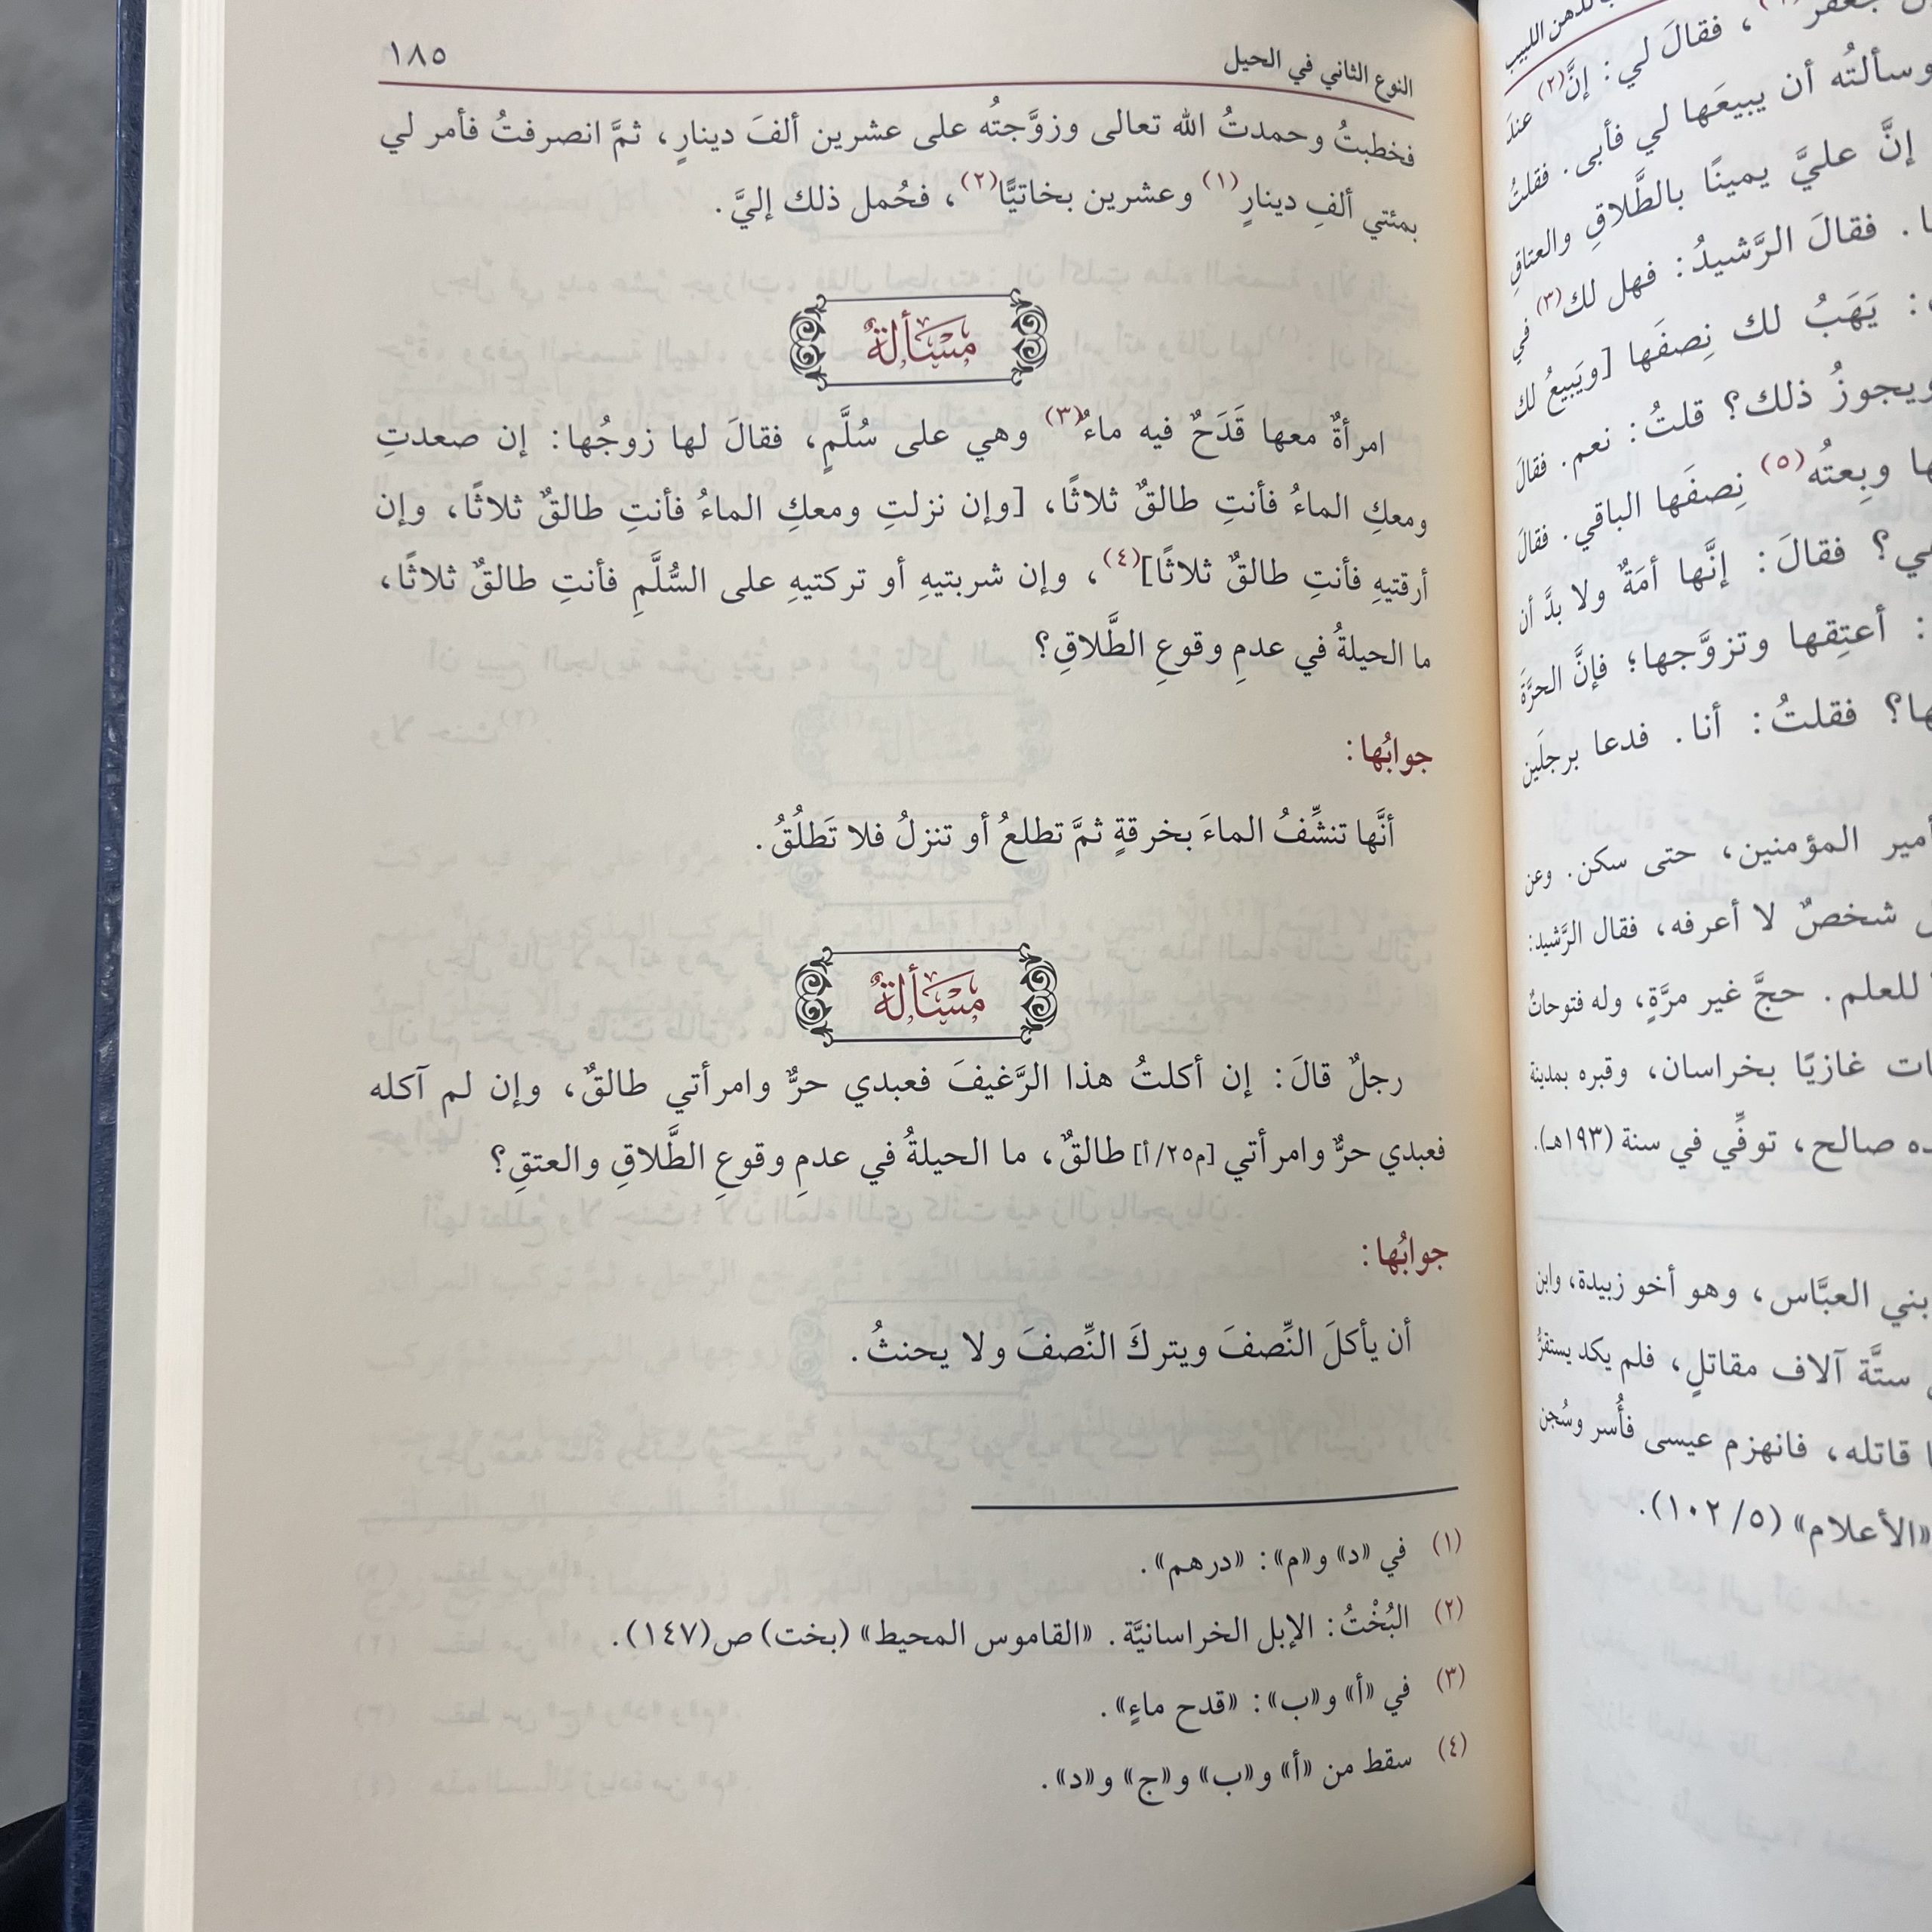 النوع الثاني في الحيل
١٨٥
فخطبتُ وحمدتُ الله تعالى وزوَّجتُه على عشرين ألفَ دينارٍ، ثمَّ انصرفتُ فأمر لي
بمئتي ألفِ دينارٍ(١) وعشرين بخاتيًّا(٢)، فحُمل ذلك إليَّ.
مَسْأَلةٌ
امرأةٌ معها قَدَحٌ فيه ماءٌ(٣) وهي على سُلَّمٍ، فقالَ لها زوجُها: إن صعدتِ
ومعكِ الماءُ فأنتِ طالقٌ ثلاثًا، [وإن نزلتِ ومعكِ الماءُ فأنتِ طالقٌ ثلاثًا، وإن
أرقتيهِ فأنتِ طالقٌ ثلاثًا](٤)، وإن شربتيهِ أو تركتيهِ على السُّلَّمِ فأنتِ طالقٌ ثلاثًا،
ما الحيلةُ في عدمِ وقوعِ الطَّلاقِ؟
جوابُها:
أنَّها تنشِّفُ الماءَ بخرقةٍ ثمَّ تطلعُ أو تنزلُ فلا تَطلُقُ.
مَسْأَلةٌ
رجلٌ قالَ: إن أكلتُ هذا الرَّغيفَ فعبدي حرٌّ وامرأتي طالقٌ، وإن لم آكله
فعبدي حرٌّ وامرأتي [م٢٥/أ] طالقٌ، ما الحيلةُ في عدمِ وقوعِ الطَّلاقِ والعتقِ؟
جوابُها:
أن يأكلَ النِّصفَ ويتركَ النِّصفَ ولا يحنثُ.
(١) في «د» و«م»: «درهم».
(٢) البُخْتُ: الإبل الخراسانيَّة. «القاموس المحيط» (بخت) ص(١٤٧).
(٣) في «أ» و«ب»: «قدح ماءٍ».
(٤) سقط من «أ» و«ب» و«ج» و«د».
فقالَ لي: إنَّ(٢) عندَ
وسألتُه أن يبيعَها لي فأبى. فقلتُ
إنَّ عليَّ يمينًا بالطَّلاقِ والعتاقِ
فقالَ الرَّشيدُ: فهل لك(٣) في
يَهَبُ لك نِصفَها [ويَبيعُ لك
ويجوزُ ذلك؟ قلتُ: نعم. فقالَ
وبِعتُه(٥) نِصفَها الباقي. فقالَ
فقالَ: إنَّها أمَةٌ ولا بدَّ أن
أعتِقها وتزوَّجها؛ فإنَّ الحرَّةَ
فقلتُ: أنا. فدعا برجلَين
أمير المؤمنين، حتى سكن. وعن
شخصٌ لا أعرفه، فقال الرَّشيد:
للعلم. حجَّ غير مرَّةٍ، وله فتوحاتٌ
غازيًا بخراسان، وقبره بمدينة
صالح، توفِّي في سنة (١٩٣هـ).
بني العبَّاس، وهو أخو زبيدة، وابن
ستَّة آلاف مقاتلٍ، فلم يكد يستقرُّ
قاتله، فانهزم عيسى فأُسر وسُجن
«الأعلام» (٥/ ١٠٢).